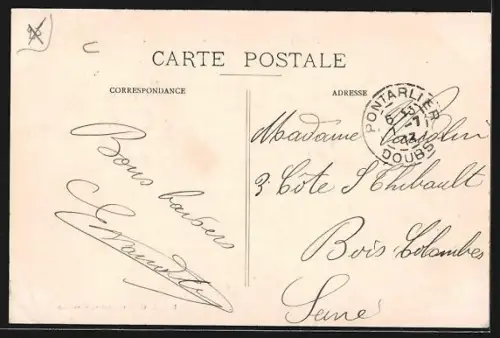 CARTE POSTALE
CORRESPONDANCE
ADRESSE
PONTARLIER
DOUBS
Bons baisers
Madame
3 Côte St Thibault
Bois Colombes
Seine